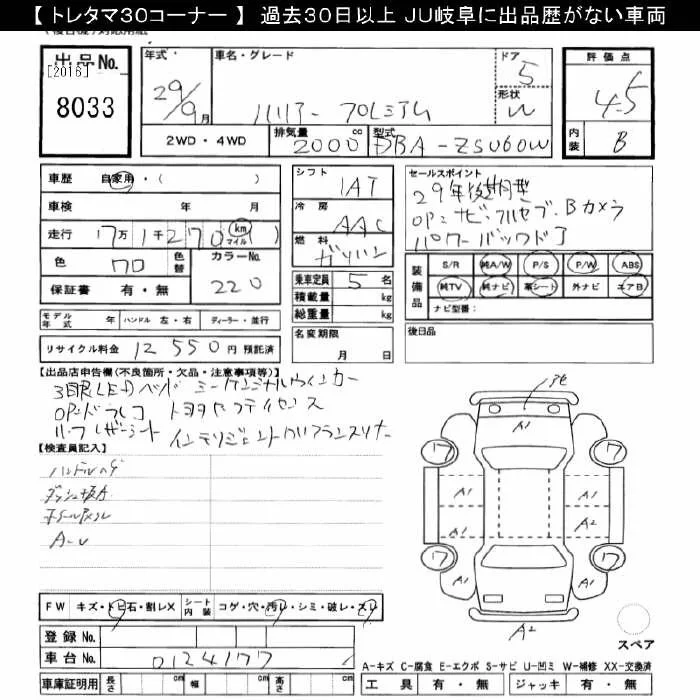 【トレタマ30コーナー】過去30日以上 JU岐阜に出品歴がない車両
出品No.
[2016]
8033
年式
29/9月
車名・グレード
ハリアー プレミアム
ドア
5
形状
W
評価点
4.5
内装
B
2WD・4WD
排気量
2000cc
型式
DBA-ZSU60W
車歴 自家用・( )
車検 年 月
走行 17万1千270 km マイル
色 クロ 色替 カラーNo. 220
保証書 有・無
シフト
IAT
冷房
AAC
燃料
ガソリン
乗車定員 5名
積載量 kg
総重量 kg
セールスポイント
29年後期型
OP:ナビ・フルセグ・Bカメラ
パワーバックドア
装備品
S/R 純A/W P/S P/W ABS
純TV 純ナビ 革シート 外ナビ エアB
ナビ型番:
モデル年式 ハンドル 左・右 ディーラー・並行
リサイクル料金 12550円 預託済
名変期限
月 日
後日品
【出品店申告欄(不良箇所・欠品・注意事項等)】
3眼LEDヘッド シーケンシャルウインカー
OP:ドラレコ トヨタセーフティセンス
ハーフレザーシート インテリジェントクリアランスソナー
【検査員記入】
ハンドルハゲ
A-U
A1
ワ ワ
A1 A1
A1 A2
ワ ワ
A1 A1
A2
スペア
FW キズ・トビ石・割レX シート内装 コゲ・穴・汚レ・シミ・破レ・スレ
登録No.
車台No. 0124177
車庫証明用 長さ cm 幅 cm 高さ cm
A-キズ C-腐食 E-エクボ S-サビ U-凹ミ W-補修 XX-交換済
工具 有・無 ジャッキ 有・無